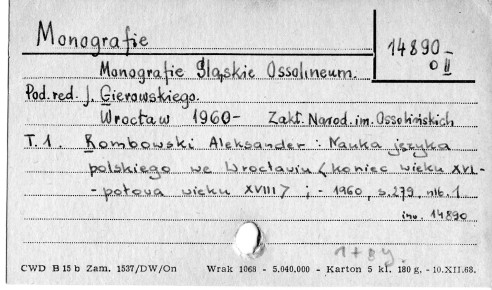 Monografie
14890-
0 II
Monografie Śląskie Ossolineum.
Pod. red. J. Gierowskiego.
Wrocław 1960- Zakł. Narod. im. Ossolińskich
T. 1. Rombowski Aleksander : Nauka języka
polskiego we Wrocławiu < koniec wieku XVI-
-połowa wieku XVIII > ; - 1960, s. 279, nlb. 1
inw. 14890
CWD B 15 b Zam. 1537/DW/On Wrak 1068 - 5.040.000 - Karton 5 kl. 180 g. - 10.XII.68.